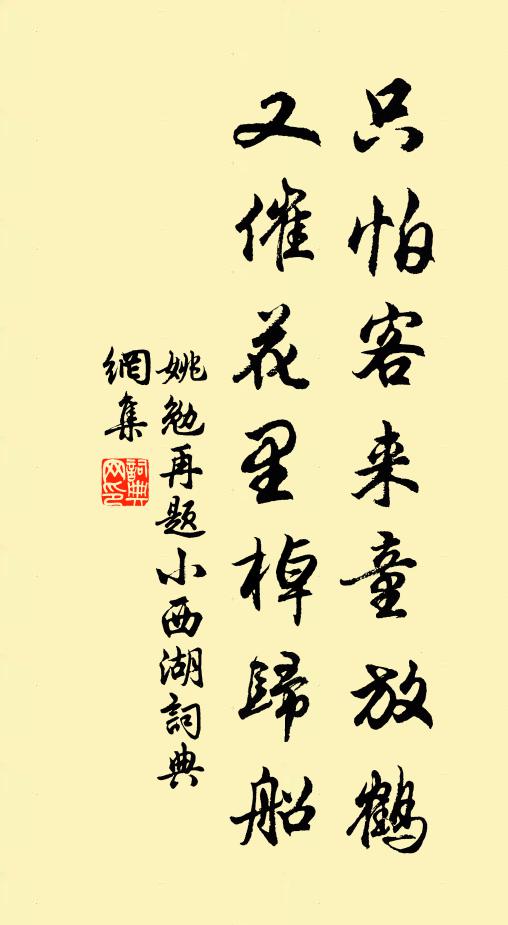 只怕客来童放鹤
又催花里棹歸船
姚勉再题小西湖詞典
網集
詞典
网印